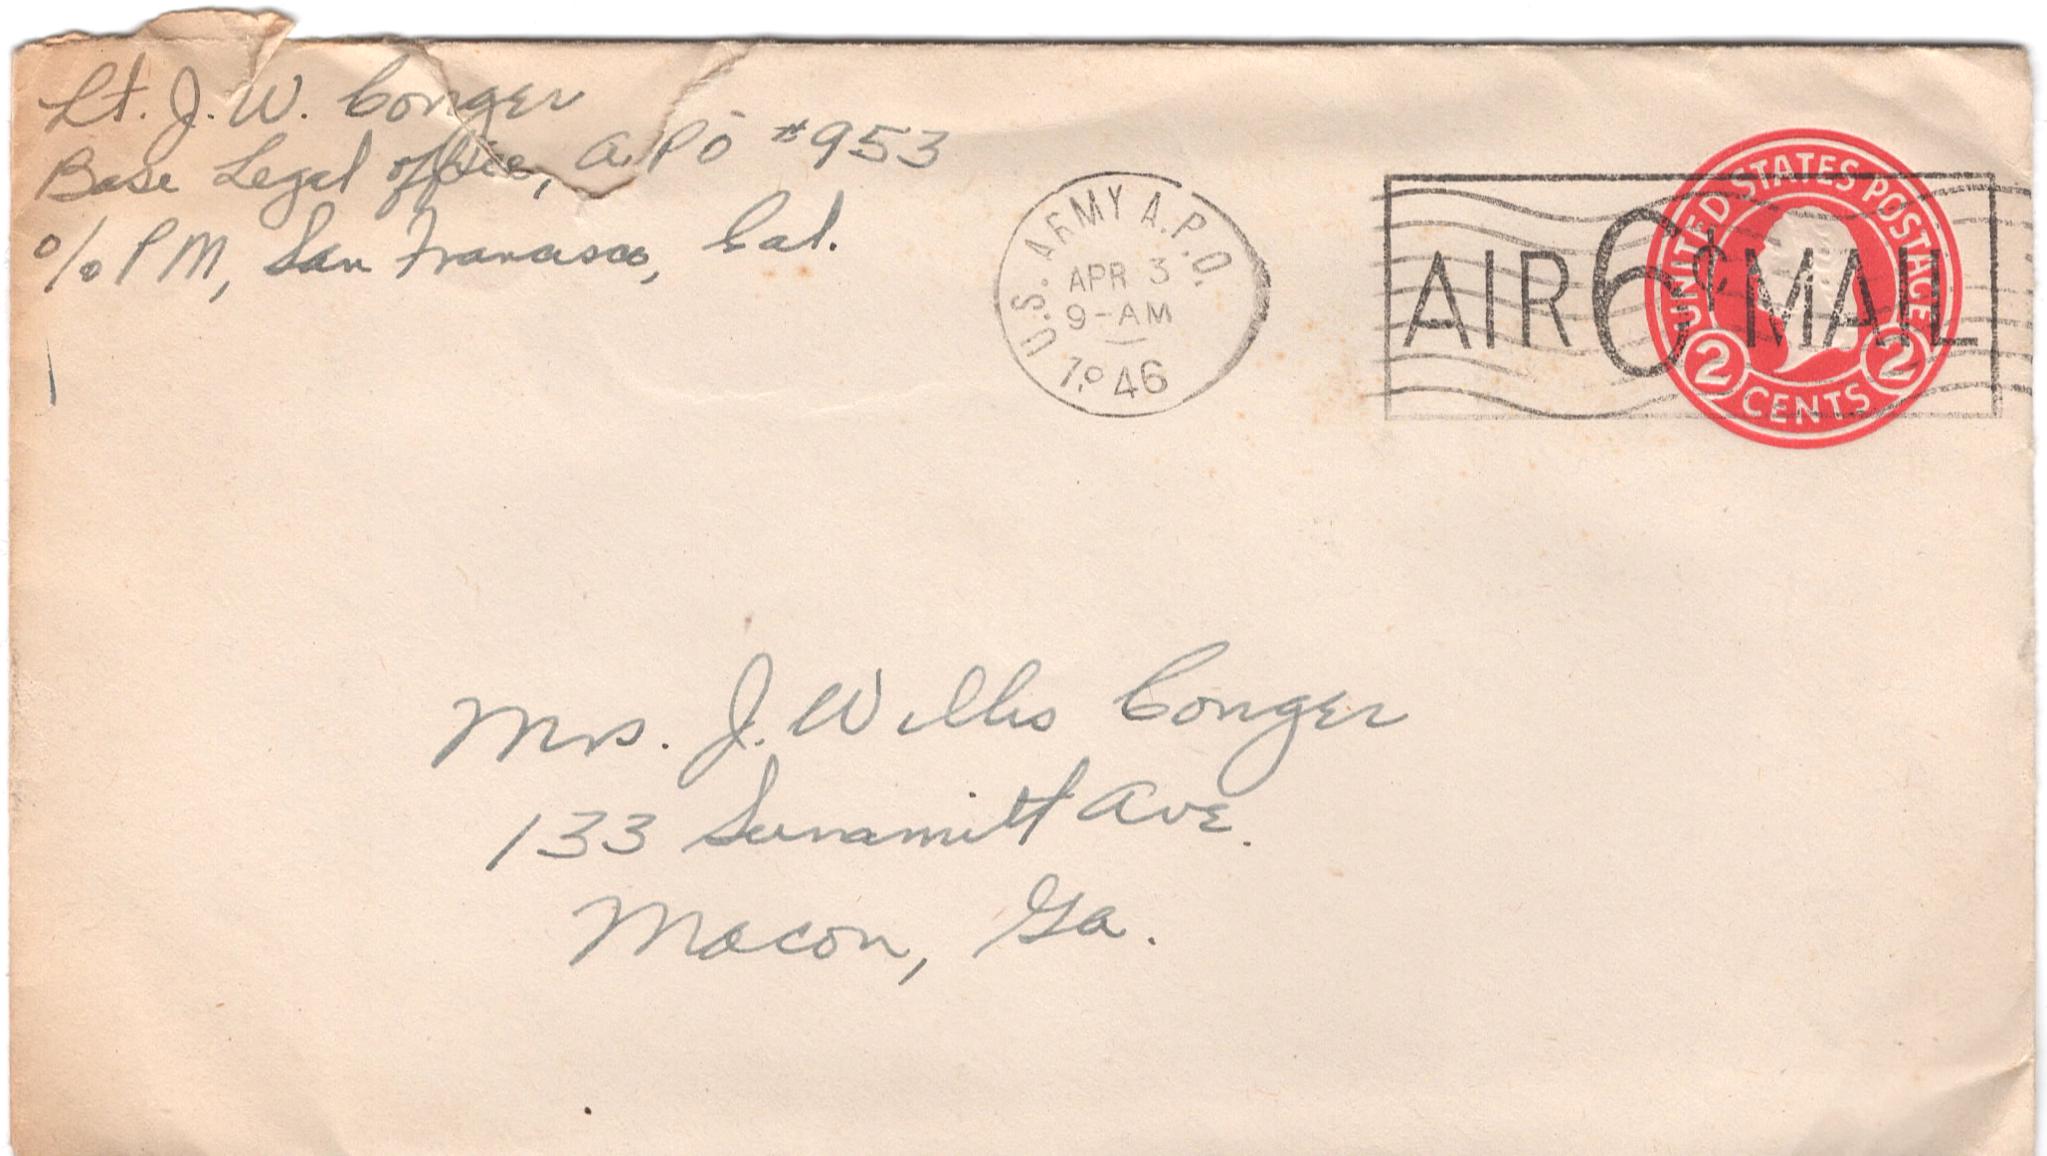 Lt. J. W. Conger
Base Legal Office, A.P.O #953
c/o PM, San Francisco, Cal.
U.S. ARMY A.P.O.
APR 3
9-AM
1946
AIR 6¢ MAIL
UNITED STATES POSTAGE
2 CENTS 2
Mrs. J. Willis Conger
133 Summitt Ave.
Macon, Ga.